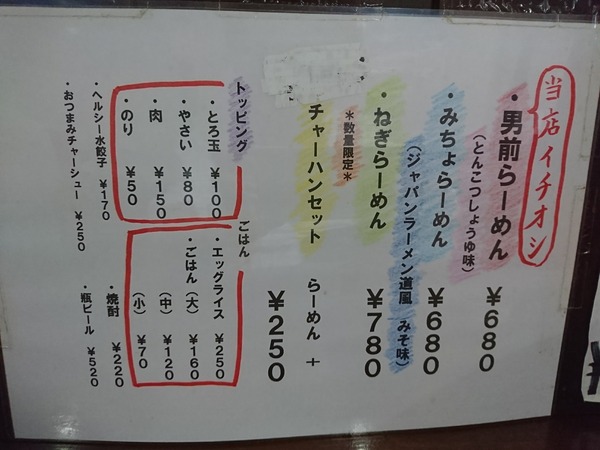 当店イチオシ
・男前らーめん ¥680
(とんこつしょうゆ味)
・みちょらーめん ¥680
(ジャパンラーメン道風 みそ味)
・ねぎらーめん ¥780
*数量限定*
チャーハンセット らーめん + ¥250
トッピング
・とろ玉 ¥100
・やさい ¥80
・肉 ¥150
・のり ¥50
ごはん
・エッグライス ¥250
・ごはん(大) ¥160
(中) ¥120
(小) ¥70
・ヘルシー水餃子 ¥170
・おつまみチャーシュー ¥250
・焼酎 ¥220
・瓶ビール ¥520
¥